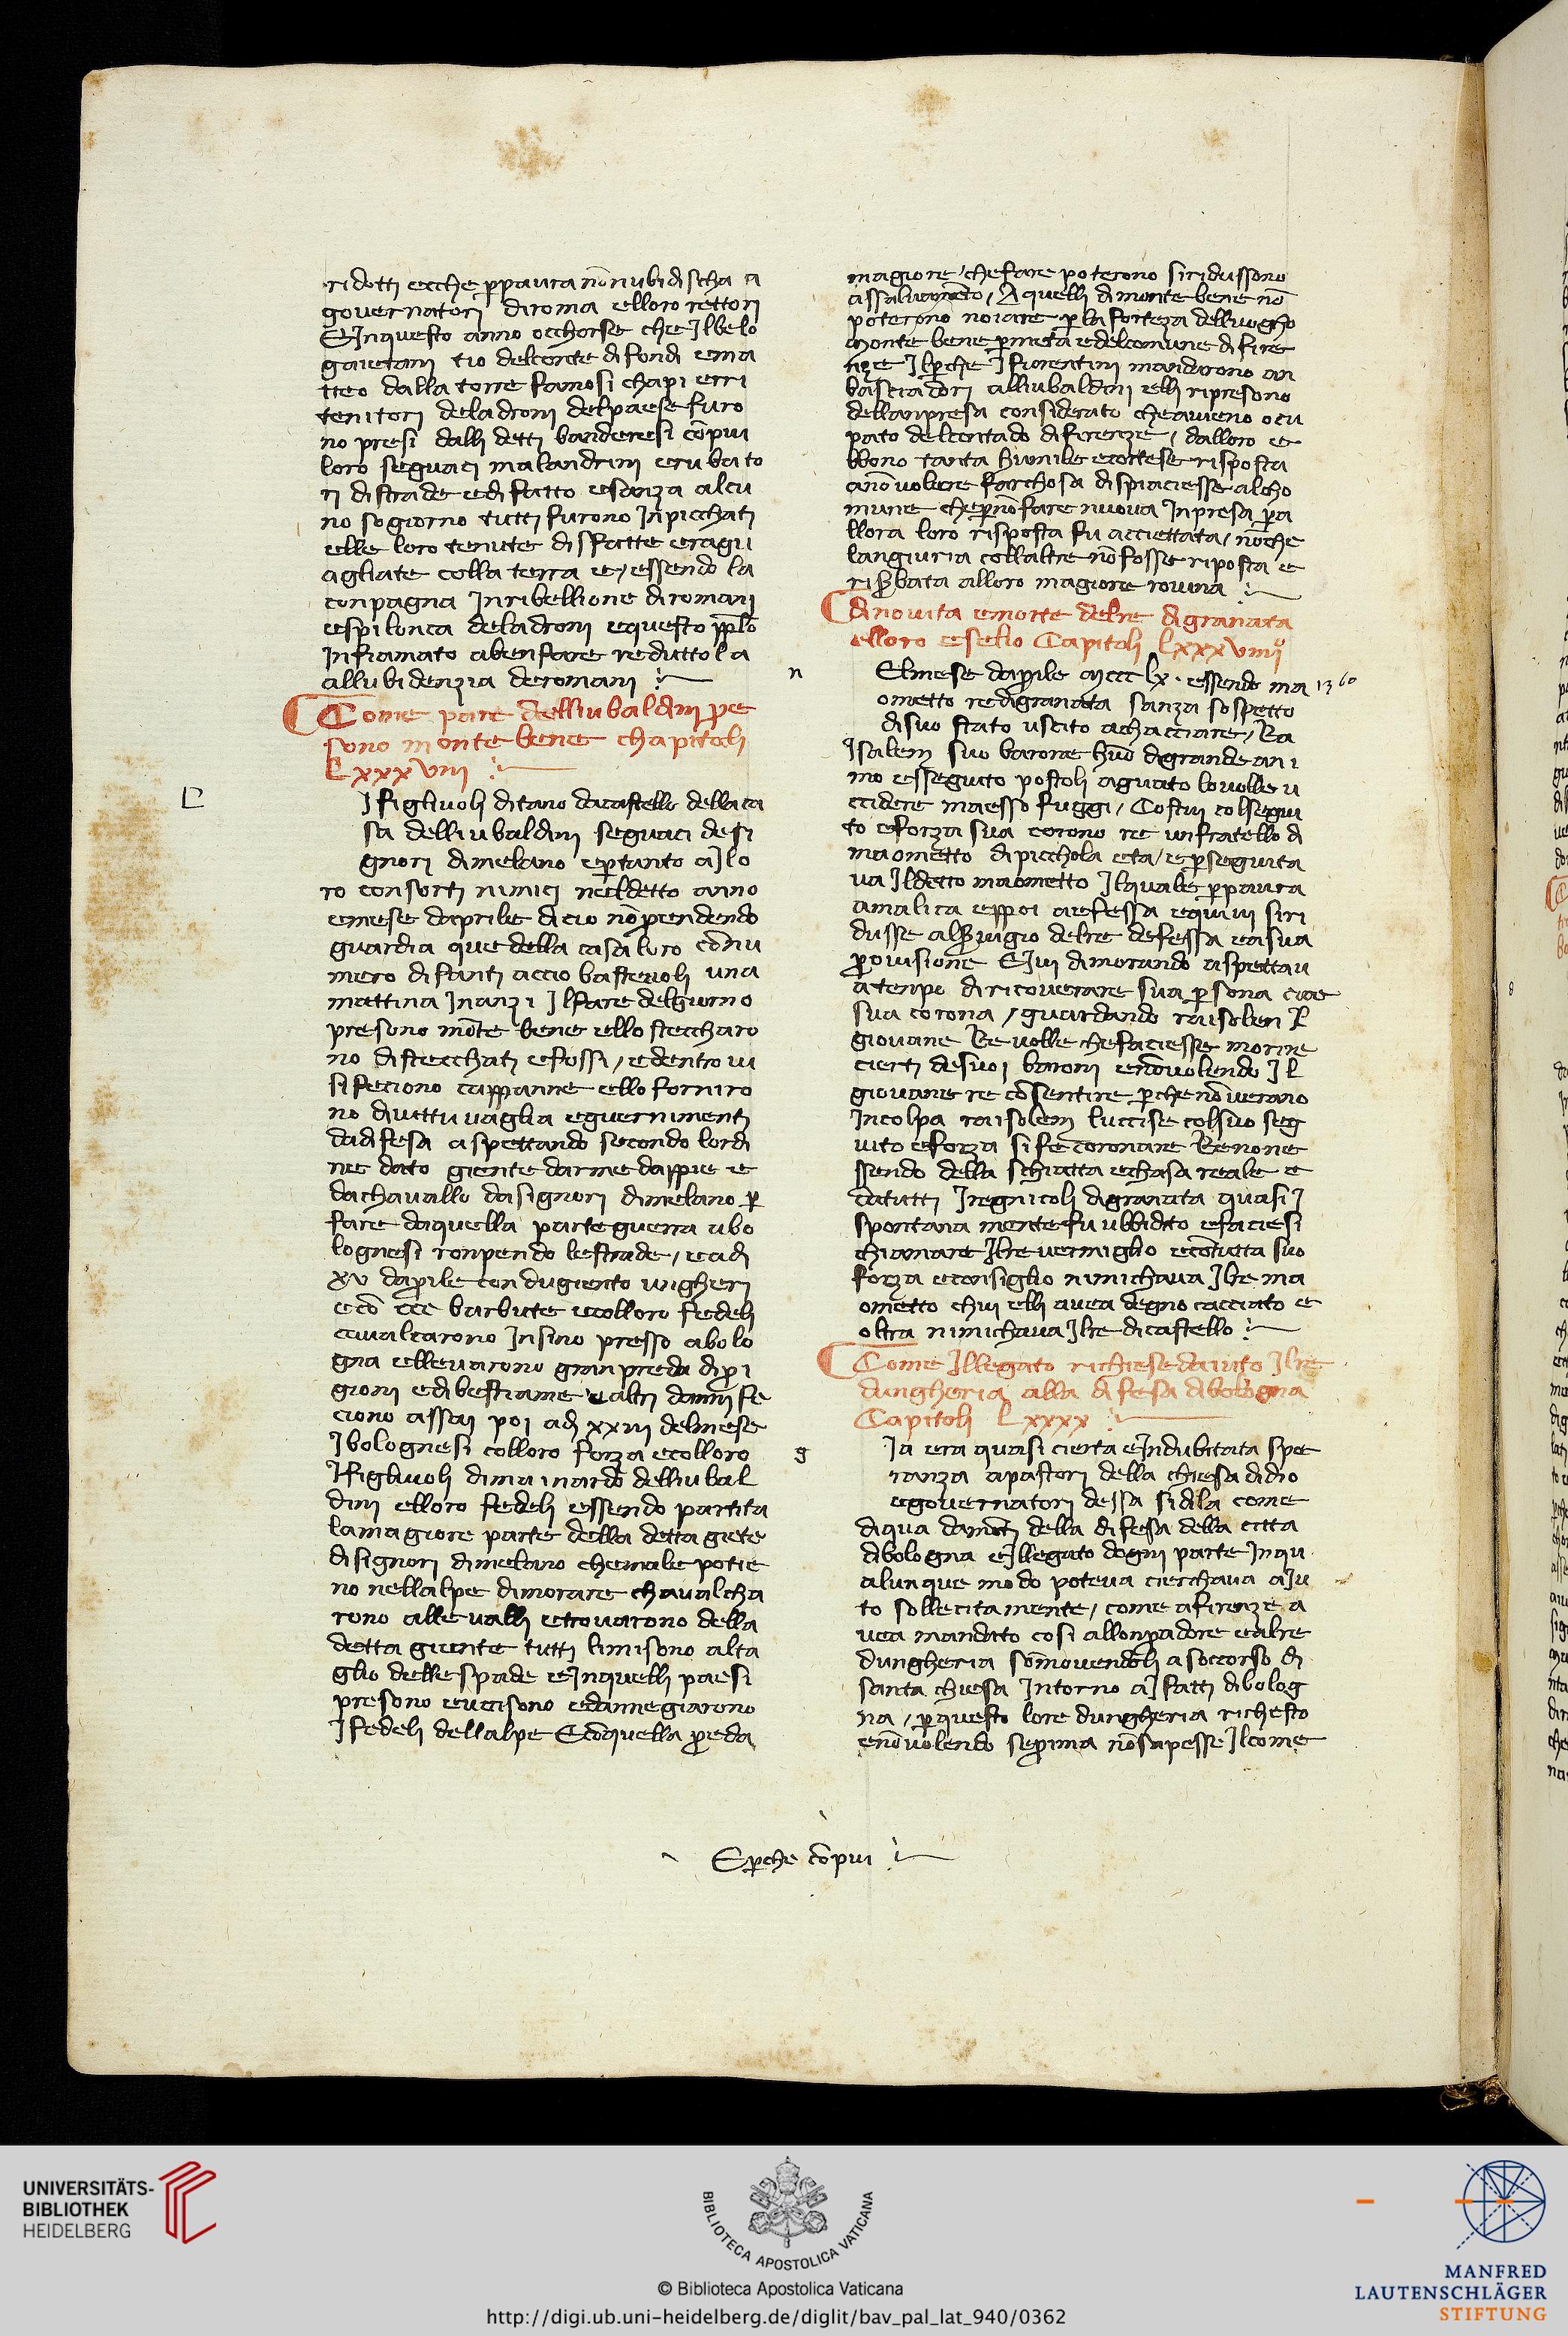 ridotti ecche p paura nō nubidischa a
governatori di roma elloro rettori
E Jnquesto anno occhorse che Jlbelo
gaietani tio delconte di fondi e ma
tteo dalla torre famosi chapi erri
tenitori deladroni delpaese furo
no presi dalli detti banderesi cō piu
loro seguaci malandrini e rubato
ri distrade edi fatto e sanza alcu
no sogiorno tutti furono Jnpicchati
elle loro tenute disfatte eragu
agliate colla terra e / essendo la
conpagna Jnribellione di romani
espilonca deladroni equesto pplō
Jnfiamato abenfare reduttola
allubidenzia de romani
Come parte delliubaldini pre
sono montebene chapitoli
Lxxxviii
J figliuoli ditano dacastello della ca
sa delliubaldini seguaci desi
gnori dimelano epertanto aJ lo
ro consorti nimici neldetto anno
emese daprile dicio nō prendendo
guardia que della casa loro cō nu
mero di fanti accio bastevoli una
mattina Jnanzi Jlfare delgiorno
presono mōte bene ello steccharo
no disteccchati efossi / edentro vi
si feciono cappanne ello forniro
no divittuvaglia eguernimenti
dadifesa aspettando secondo lordi
ne dato giente darme dappie e
dachavallo dasignori dimelano p
fare daquella parte guerra abo
lognesi ronpendo lestrade / e adi
xv daprile con dugiento ungheri
e cō ccc barbute ecolloro fedeli
cavalcarono Jnsino presso abolo
gna ellevarono gran preda dipri
gioni edibestiame e altri danni fe
ciono assai poi adi xxiii delmese
J bolognesi colloro forza ecolloro
J figliuoli dimainardo delliubal
dini elloro fedeli essendo partita
lamagiore parte della detta giēte
disignori dimelano chemale potie
no nellalpe dimorare chavalcha
rono alle valli etrovarono della
detta giente tutti limisono alta
glio delle spade eJnquelli paesi
presono euccisono edannegiarono
J fedeli dellalpe E cōquella preda
magiore / chefare poterono siridussono
assalvamēto / A quelli dimonte bene nō
poterono noiare p la forteza delluogho
monte bene p meta edelcomune di fire
nze Jlperche J fiorentini mandarono an
basciadori alliubaldini elli ripresono
dellanpresa considerato cheavieno ocu
pato delcontado difirenze / dalloro e
bbono tanta humile ecortese risposta
anō volere farchosa dispiaciesse alcho
mune chepnō fare nuova Jnpresa pa
llora loro risposta fu acciettata / nō che
langiuria collaltre nō fosse riposta e
riserbata alloro magiore rovina
Di novita emorte delre digranata
elloro eselio Capitoli Lxxxviiii°
n
Elmese daprile Mccclx. essendo ma
1360
ometto redigranata sanza sospetto
disuo stato uscito achacciare / Ra
Jsalem suo barone huō digrande ani
mo esseguito postoli aguato lovolle u
ccidere maesso fuggi / Costui colsegui
to eforza sua corono re unfratello di
maometto dipicchola eta / eperseguita
va Jldetto maometto Jlquale p paura
amalica eppoi aefessa equivi siri
dusse alservigio delre defessa easua
provisione E Jvi dimorando aspettav
a tenpo diricoverare sua persona cioe
sua corona / guardando raisolen Jl
giovane Re volle chefaciesse morire
cierti desuoi baroni enō volendo Jl
giovane re cōsentire perchenō verano
Jncolpa raisolem luccise colsuo seg
uito eforza sife coronare Re none
ssendo della schiatta echasa reale e
datutti Jregnicoli digranata quasi J
spontana mente fu ubbidito efaciesi
chiamare Jlre vermiglio ecōtutta suo
forza econsiglio nimichava Jlre ma
ometto chui elli avea degno cacciato e
oltra nimichava Jlre dicastello
Come Jllegato richiese daiuto Jlre
dungheria alla difesa dibologna
Capitoli Lxxxx
g
Ja era quasi cierta eJndubitata spe
ranza apastori della chiesa didio
egovernatori dessa sidila come
diqua damōti della difesa della citta
dibologna eJllegato dogni parte Jnqu
alunque modo poteva cierchava aJu
to sollecitamente / come afirenze a
vea mandato cosi allonperadore ealre
dungheria sōmovendoli asoccorso di
santa chiesa Jntorno aJ fatti dibolog
na / perquesto lore dungheria richiesto
enō volendo seprima nō sapesse Jlcome
Eperche cō piu
UNIVERSITÄTS-
BIBLIOTHEK
HEIDELBERG
BIBLIOTECA APOSTOLICA VATICANA
© Biblioteca Apostolica Vaticana
http://digi.ub.uni-heidelberg.de/diglit/bav_pal_lat_940/0362
MANFRED
LAUTENSCHLÄGER
STIFTUNG